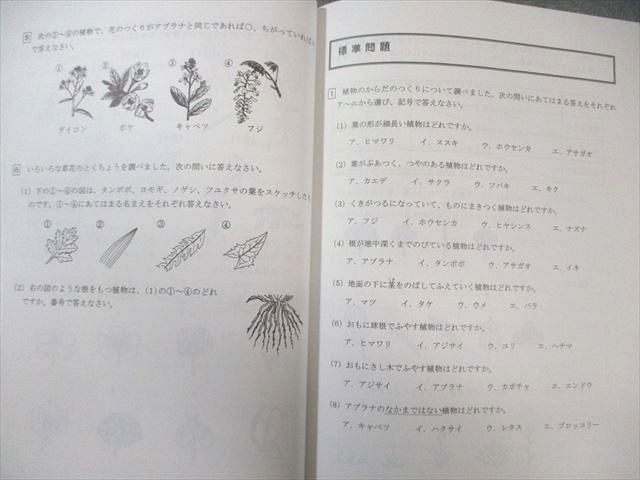 5 次の①~④の植物で、花のつくりがアブラナと同じであれば○、ちがっていれば×
で答えなさい。
① ② ③ ④
ダイコン ボケ キャベツ フジ
6 いろいろな草花のとくちょうを調べました。次の問いに答えなさい。
(1) 下の①~④の図は、タンポポ、ヨモギ、ノゲシ、ツユクサの葉をスケッチしたも
のです。①~④にあてはまる名まえをそれぞれ答えなさい。
① ② ③ ④
(2) 右の図のような根をもつ植物は、(1)の①~④のどれ
ですか。番号で答えなさい。
標準問題
1 植物のからだのつくりについて調べました。次の問いにあてはまる答えをそれぞれ
ア~エから選び、記号で答えなさい。
(1) 葉の形が細長い植物はどれですか。
ア. ヒマワリ イ. ススキ ウ. ホウセンカ エ. アサガオ
(2) 葉がぶあつく、つやのある植物はどれですか。
ア. カエデ イ. サクラ ウ. ツバキ エ. キク
(3) くきがつるになっていて、ものにまきつく植物はどれですか。
ア. フジ イ. ホウセンカ ウ. ヒヤシンス エ. ナズナ
(4) 根が地中深くまでのびている植物はどれですか。
ア. アブラナ イ. タンポポ ウ. アサガオ エ. イネ
(5) 地面の下に茎をのばしてふえていく植物はどれですか。
ア. マツ イ. タケ ウ. ウメ エ. バラ
(6) おもに球根でふやす植物はどれですか。
ア. ヒマワリ イ. アジサイ ウ. ユリ エ. ヘチマ
(7) おもにさし木でふやす植物はどれですか。
ア. アジサイ イ. アブラナ ウ. カボチャ エ. エンドウ
(8) アブラナのなかまではない植物はどれですか。
ア. キャベツ イ. ハクサイ ウ. レタス エ. ブロッコリー